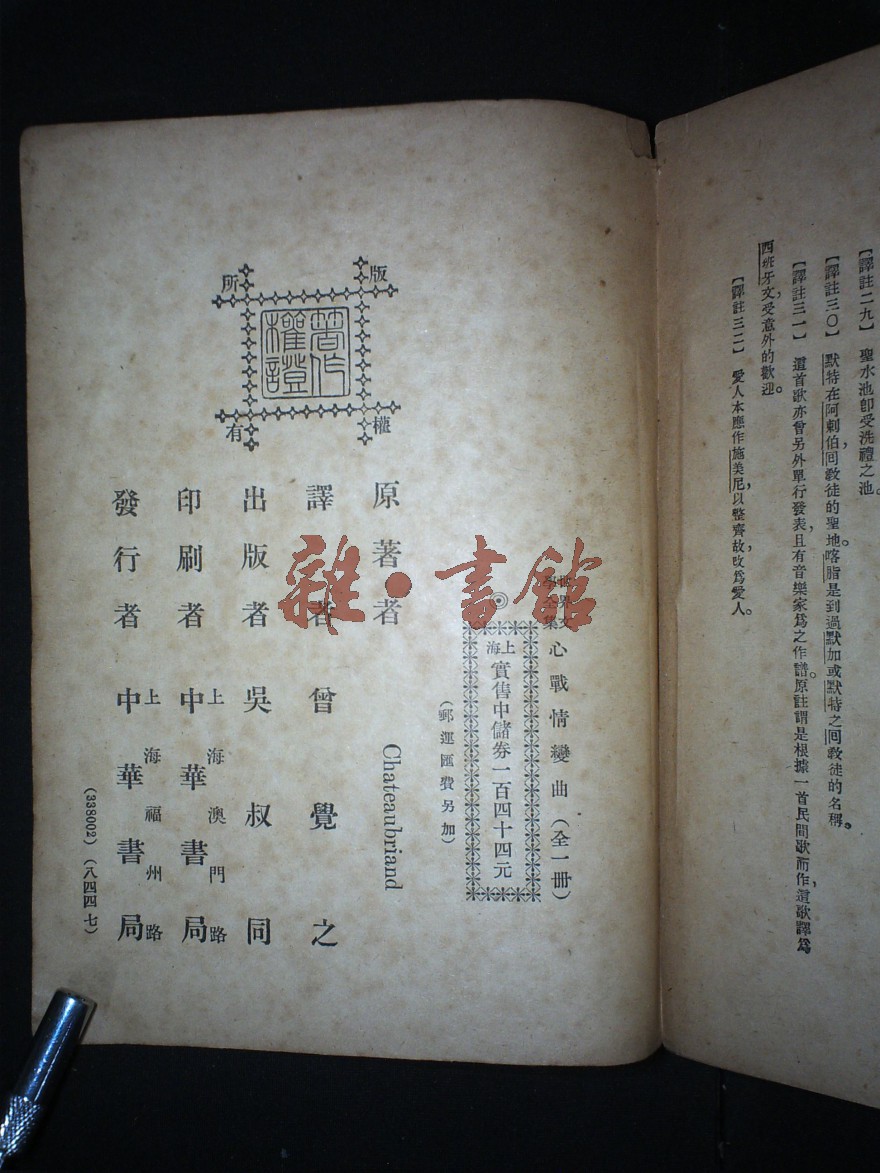 【譯註二九】 聖水池卽受洗禮之池。
【譯註三〇】 默特在阿剌伯，回敎徒的聖地。喀脂是到過默加或默特之回敎徒的名稱。
【譯註三一】 這首歌亦曾另外單行發表，且有音樂家爲之作譜。原註謂是根據一首民間歌而作，這歌譯爲
西班牙文，受意外的歡迎。
【譯註三二】 愛人本應作施美尼，以整齊故改爲愛人。
世界文
學全集 心戰情變曲（全一册）
◎
上海 實售中儲券一百四十四元
（郵運匯費另加）
版權所有
著作權證
原著者 Chateaubriand
譯者 曾覺之
出版者 吳叔同
印刷者 上海澳門路 中華書局
發行者 上海福州路 中華書局
(338002)（八四四七）
雜·書館